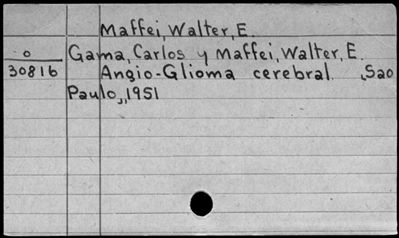 Maffei, Walter, E.
o Gama, Carlos y Maffei, Walter, E.
30816 Angio-Glioma cerebral. ,Sao
Paulo,,1951